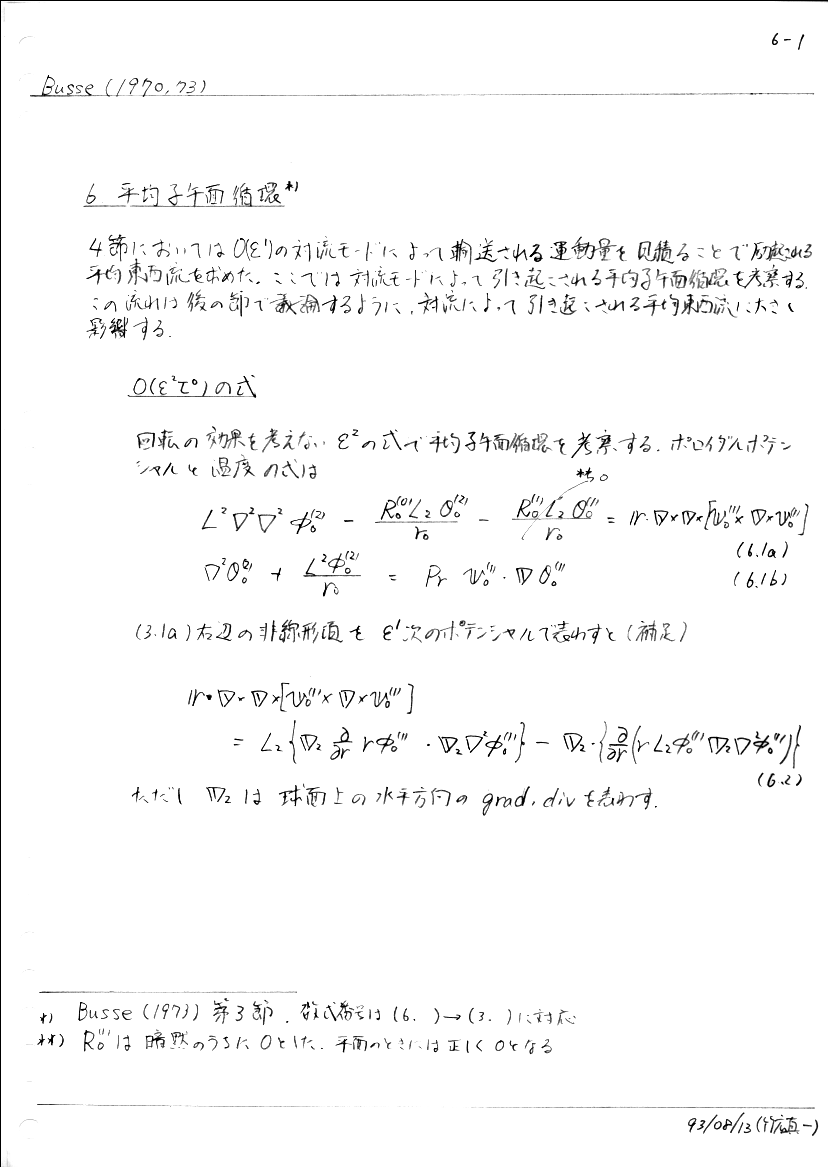 6-1
Busse (1970, 73)
6 平均子午面循環*)
4節においては O(ε¹)の対流モードによって輸送される運動量を見積ることで励起される
平均東西流を求めた. ここでは対流モードによって引き起こされる平均子午面循環を考察する.
この流れは後の節で議論するように, 対流によって引き起こされる平均東西流に大きく
影響する.
O(ε²τ⁰)の式
回転の効果を考えない ε²の式で平均子午面循環を考察する. ポロイダルポテン
シャルと温度の式は
**) 0
L²∇²∇²φ₀⁽²⁾ − R₀⁽⁰⁾L₂θ₀⁽²⁾/r₀ − R₀⁽¹⁾L₂θ₀⁽¹⁾/r₀ = 𝐫·∇×∇×[𝐯₀⁽¹⁾×∇×𝐯₀⁽¹⁾]
(6.1a)
∇²θ₀⁽²⁾ + L²φ₀⁽²⁾/r₀ = Pr 𝐯₀⁽¹⁾·∇θ₀⁽¹⁾ (6.1b)
(3.1a)右辺の非線形項を ε¹次のポテンシャルで表わすと(補足)
𝐫·∇×∇×[𝐯₀⁽¹⁾×∇×𝐯₀⁽¹⁾]
= L₂{∇₂ ∂/∂r rφ₀⁽¹⁾ · ∇₂∇²φ₀⁽¹⁾} − ∇₂·{∂/∂r(r L₂φ₀⁽¹⁾∇₂∇²φ₀⁽¹⁾)}
(6.2)
ただし ∇₂ は 球面上の水平方向の grad, div を表わす.
*) Busse (1973) 第3節. 数式番号は (6. )→(3. )に対応
**) R₀⁽¹⁾は暗黙のうちに0とした. 平面のときには正しく0となる
93/08/13(竹広真一)